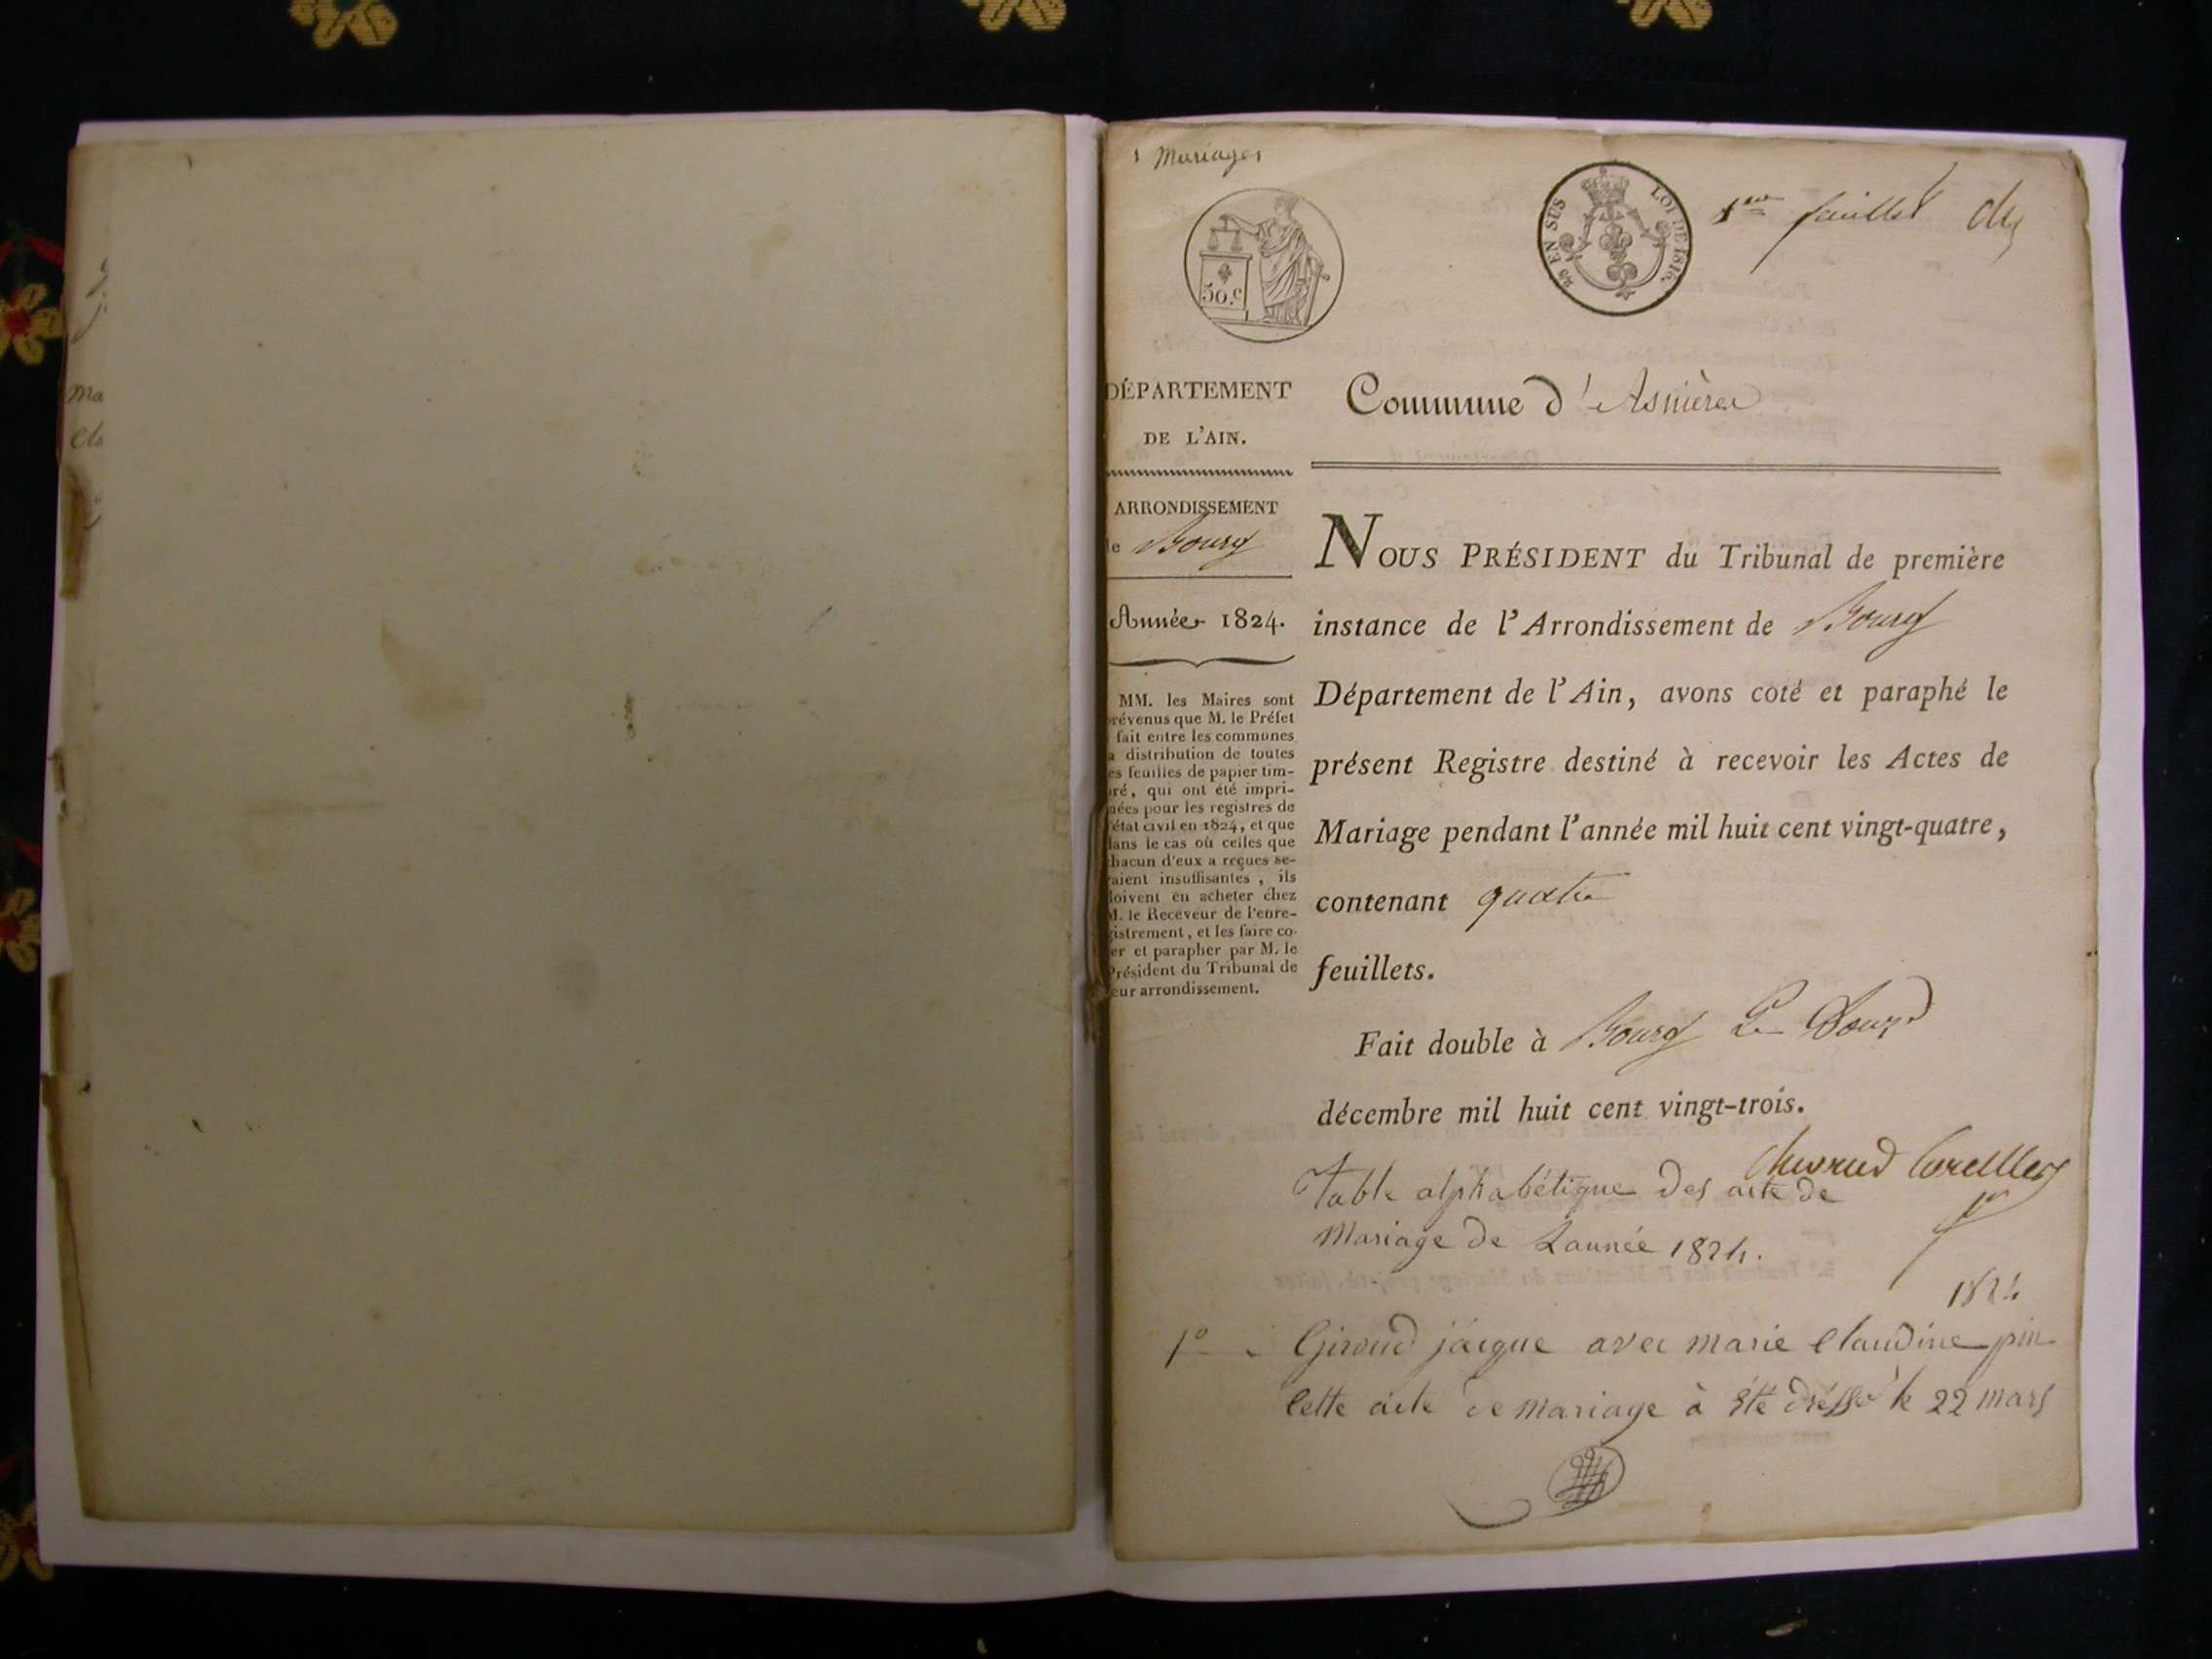 Mariages
50.c
EN SUS
LOI DE 1816
1er feuillet
DÉPARTEMENT
DE L'AIN.
ARRONDISSEMENT
de Bourg
Année 1824.
MM. les Maires sont
prévenus que M. le Préfet
fait entre les communes
la distribution de toutes
les feuilles de papier tim-
bré, qui ont été impri-
mées pour les registres de
l'état civil en 1824, et que
dans le cas où celles que
chacun d'eux a reçues se-
raient insuffisantes, ils
doivent en acheter chez
M. le Receveur de l'enre-
gistrement, et les faire co-
ter et parapher par M. le
Président du Tribunal de
leur arrondissement.
Commune d'Asnières
NOUS PRÉSIDENT du Tribunal de première
instance de l'Arrondissement de Bourg
Département de l'Ain, avons coté et paraphé le
présent Registre destiné à recevoir les Actes de
Mariage pendant l'année mil huit cent vingt-quatre,
contenant quatre
feuillets.
Fait double à Bourg Le Douze
décembre mil huit cent vingt-trois.
Table alphabétique des acte de
Mariage de Lannée 1824.
1824
1o Giroud jacque avec marie Claudine pin
Cette acte de mariage à été dréssé le 22 mars